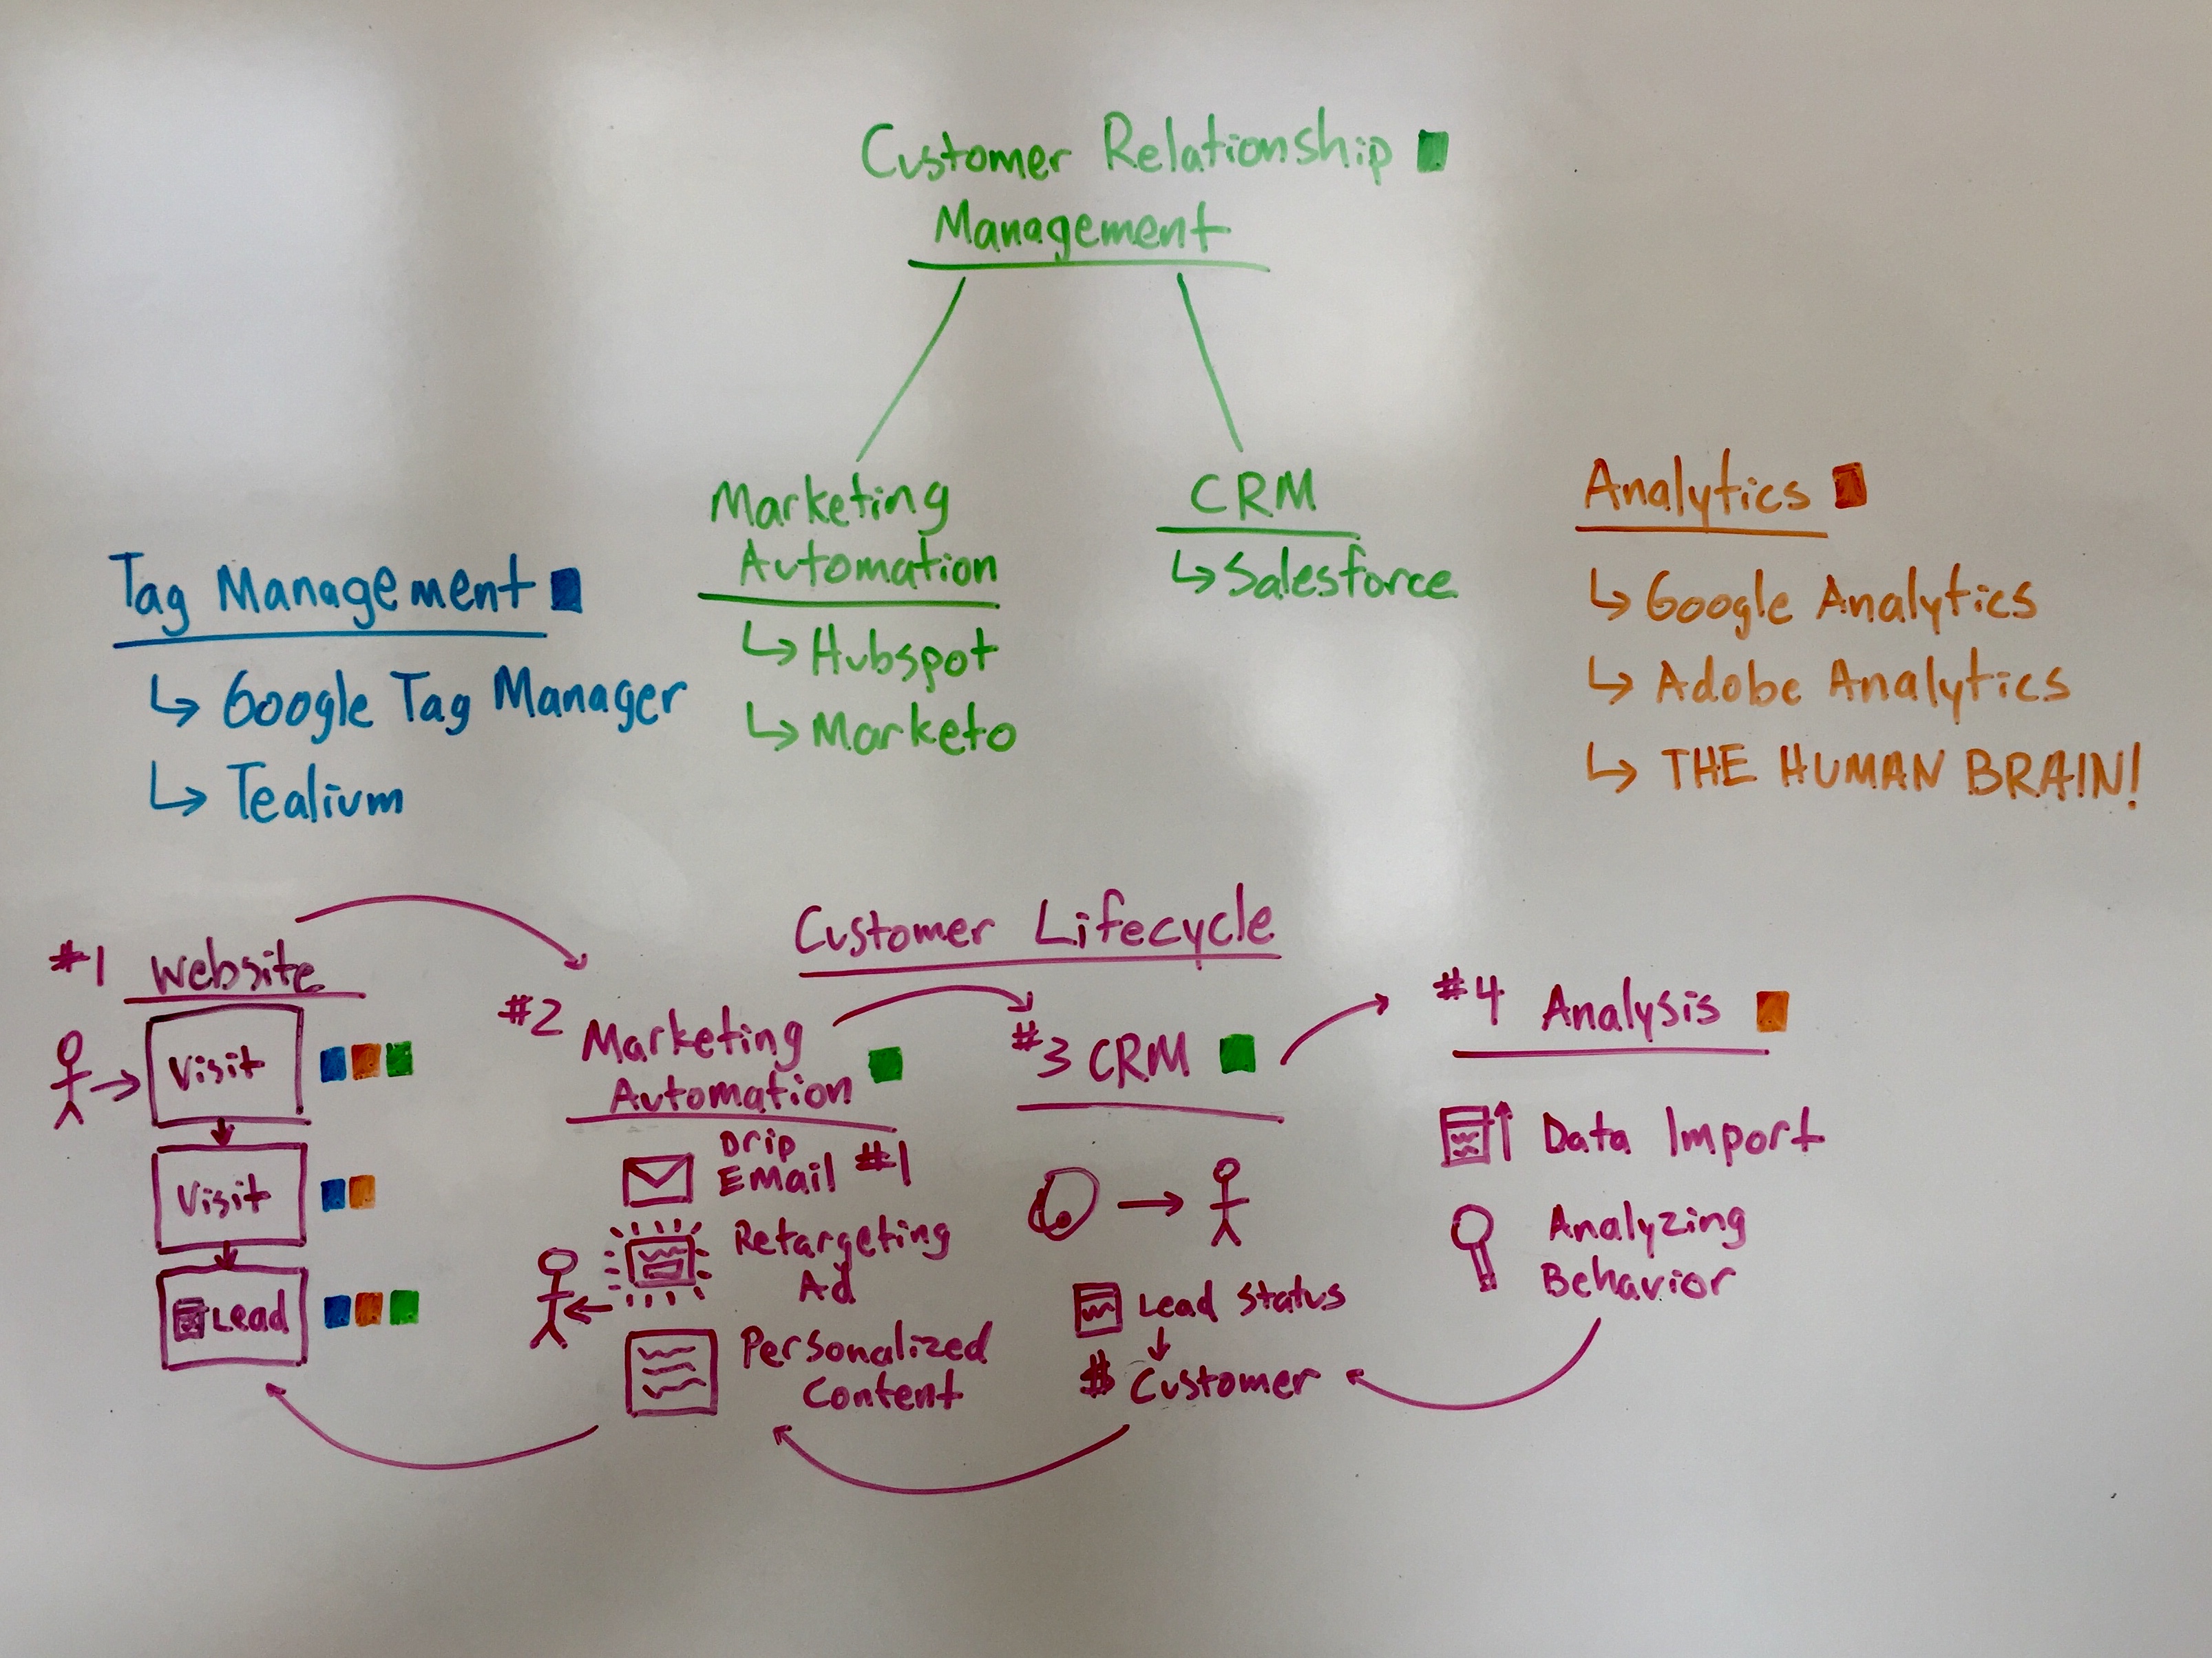 Customer Relationship
Management
Marketing
Automation
↳ Hubspot
↳ Marketo
CRM
↳ Salesforce
Tag Management
↳ Google Tag Manager
↳ Tealium
Analytics
↳ Google Analytics
↳ Adobe Analytics
↳ THE HUMAN BRAIN!
Customer Lifecycle
#1 Website
Visit
Visit
Lead
#2 Marketing
Automation
Drip
Email #1
Retargeting
Ad
Personalized
Content
#3 CRM
Lead Status
$ Customer
#4 Analysis
Data Import
Analyzing
Behavior